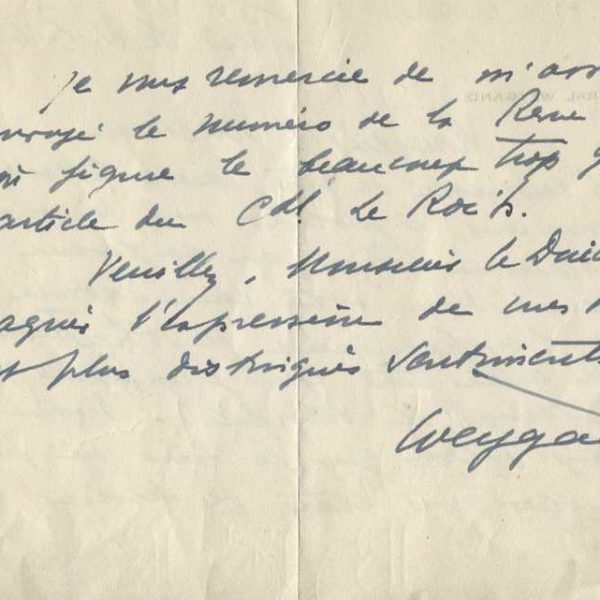 Je vous remercie de m'avo
envoyé le numéro de la Revue
où figure le beaucoup trop g
article du Cdt. Le Roc'h.
Veuillez, Monsieur le Direc
agréer l'expression de mes
et plus distingués sentiments
Weyga